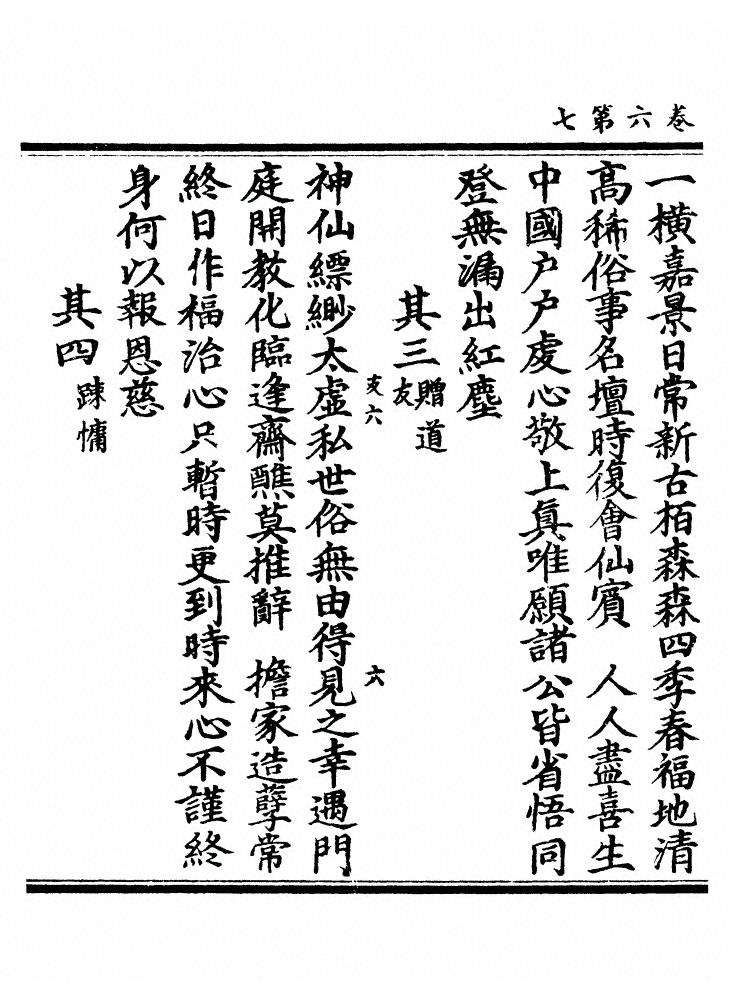 卷六第七
一橫嘉景日常新古栢森森四季春福地清
高稀俗事名壇時復會仙賓　人人盡喜生
中國户户虔心敬上眞唯願諸公皆省悟同
登無漏出紅塵
其三 贈道友
支六　六
神仙縹緲太虛私世俗無由得見之幸遇門
庭開教化臨逢齋醮莫推辭　擔家造孽常
終日作福治心只暫時更到時來心不謹終
身何以報恩慈
其四 踈慵